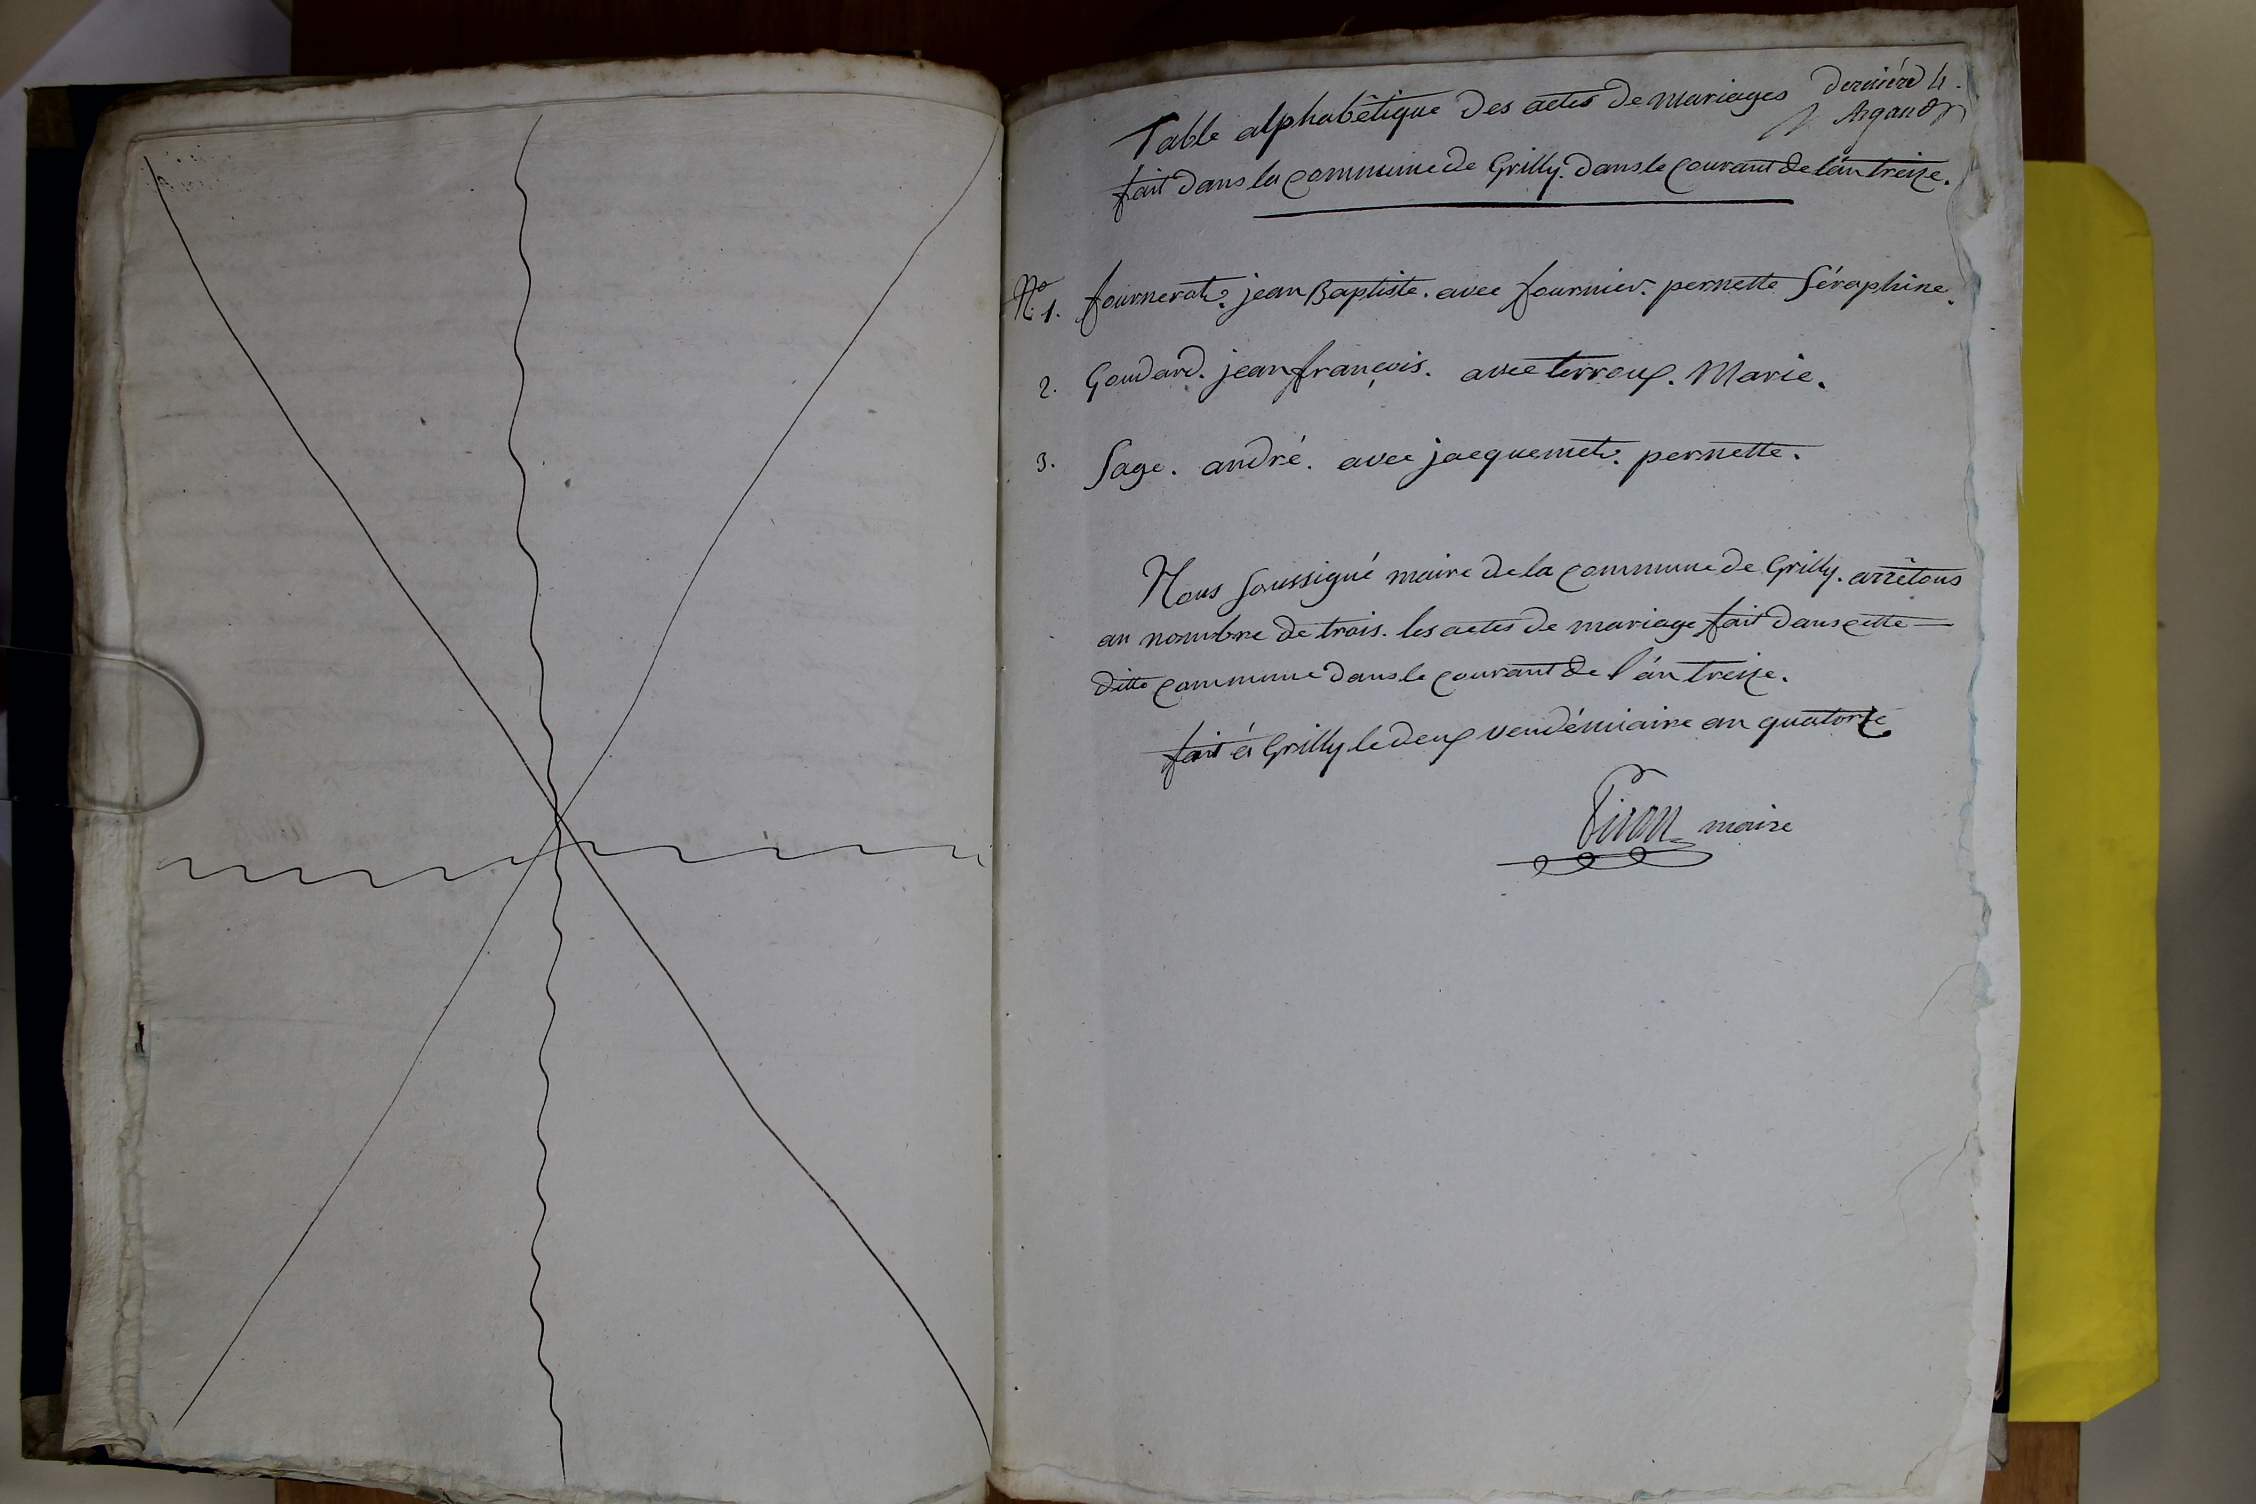 Dernière 4.
Argand
Table alphabêtique des actes de mariages
fait dans la commune de Grilly. dans le courant de l'án treize.
N.º 1. fournerat. jean Baptiste. avec fournier. pernette Séraphine.
2. Goudard. jean françois. avec terroux. Marie.
3. Sage. andré. avec jacquemet. pernette.
Nous soussigné maire de la commune de Grilly. arrêtons
au nombre de trois. les actes de mariage fait dans cette
ditte commune dans le courant de l'án treize.
fait à Grilly le deux vendémiaire an quatorze
Piron maire